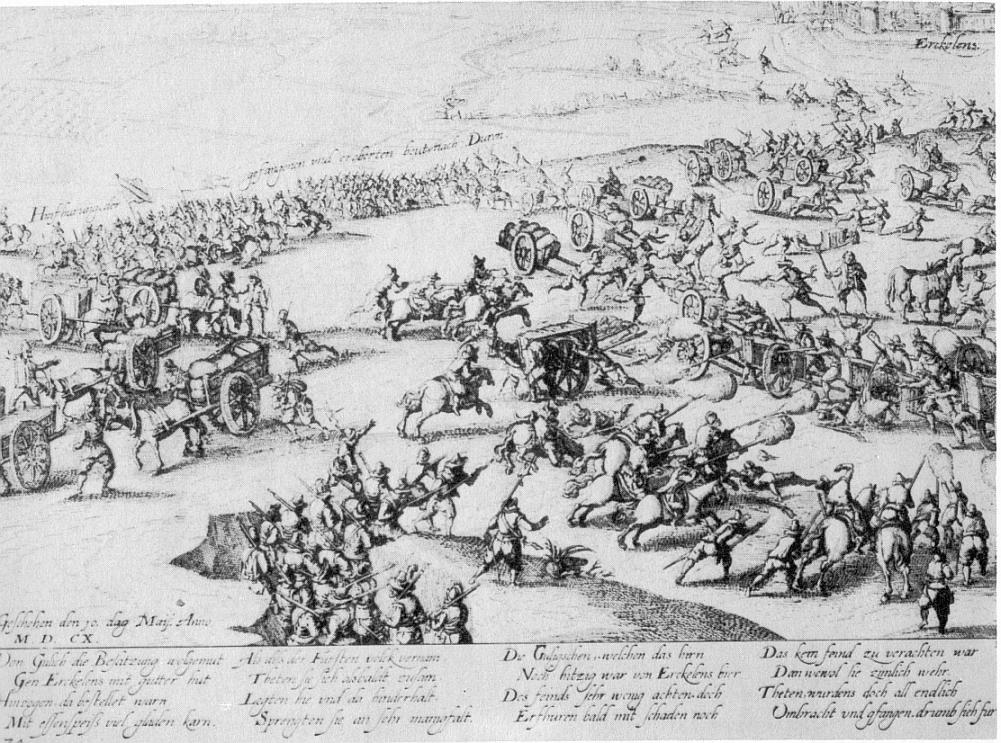 Erckelens.
gefangenen und eroberten beut nach Duirn
Hinfhurung der
Geschehen den 10. dag Maij. Anno.
M. D. CX.
Von Gulich die Besitzung wolgemut
Gen Erckelens mit gutter hut
Hinzogen, da bestellet warn
Mit essenspeiß viel gladen karn.
Als das der Fürsten volck vernam.
Theten sie sich alsbaldt zusam.
Legten hie und da hinderhalt.
Sprengten sie an sehr manigfalt.
Die Guligschen, welchen das hirn
Noch hitzig war von Erckelens bier
Des feinds sehr wenig achten, doch
Erfhuren bald mit schaden noch
Das kein feind zu verachten war
Dan wewol sie zimlich wehr
Theten, wurdens doch all endlich
Umbracht und gfangen, drumb sieh fur